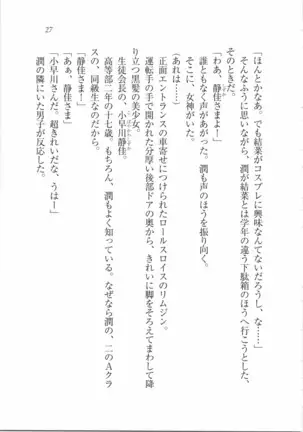 27
「ほんとかなあ。でも結菜がコスプレに興味なんてないだろうし、な……」
そんなふうに思いながら、潤が結菜とは学年の違う下駄箱のほうへ行こうとした、
そのときだ。
「わあ、静佳さまよ!」
誰ともなく声があがった。潤も声のほうを振り向く。
そこに、女神がいた。
(あれは……)
正面エントランスの車寄せにつけられたロールスロイスのリムジン。
運転手の手で開かれた分厚い後部ドアの奥から、きれいに脚をそろえてまわして降
り立つ黒髪の美少女。
生徒会長の、小早川静佳。
高等部二年の十七歳。もちろん、潤もよく知っている。なぜなら潤の、二のAクラ
スの、同級生なのだから。
「静佳さま!」
「あぁ、静佳さま」
「小早川さんだ。超きれいだな、うはー」
潤の隣にいた男子が反応した。